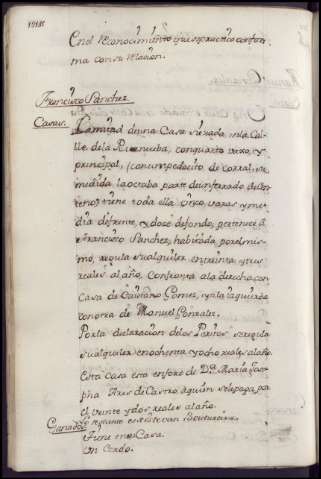 En el reconocimiento que se practicó confor-
ma con su relacion.
Francisco Sanchez
Casas.
La mitad de una Casa situada, en la Ca-
lle de la con quarto vaxo, y
principal, con un pedacito de corral, su
medida la octava parte de un ferrado de
tiene toda ella cinco varas y me-
dia de frente, y doce de fondo, pertenece à
Francisco Sanchez, habitada por el mis-
mo, regula su alquiler en treinta y tres
reales al año. Confronta a la derecha con
Casa de Gomez, y a la izquierda
con otra de Manuel Gonzalez.
Por la declaracion de los Peritos se regula
su alquiler en ochenta y ocho reales al año.
Esta casa esta en foro de D.ª Maria Jose-
pha de Castro, a quien se le paga por
el veinte y dos reales al año.
Ganados
Tiene en su Casa.
Un Cerdo.